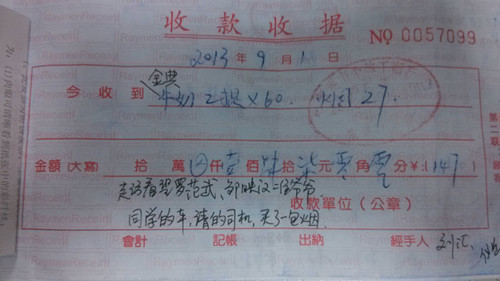 收款收据 № 0057099
2013年9月1日
金典
今收到 牛奶2提×60. 烟27.
金額(大寫) 拾 萬 仟壹佰肆拾柒元零角零分¥:147
走访看望罗范武、邹映汉二位爷爷
收款單位(公章)
同学的车,请的司机,买了一包烟.
會計 記帳 出納 經手人 刘汇、